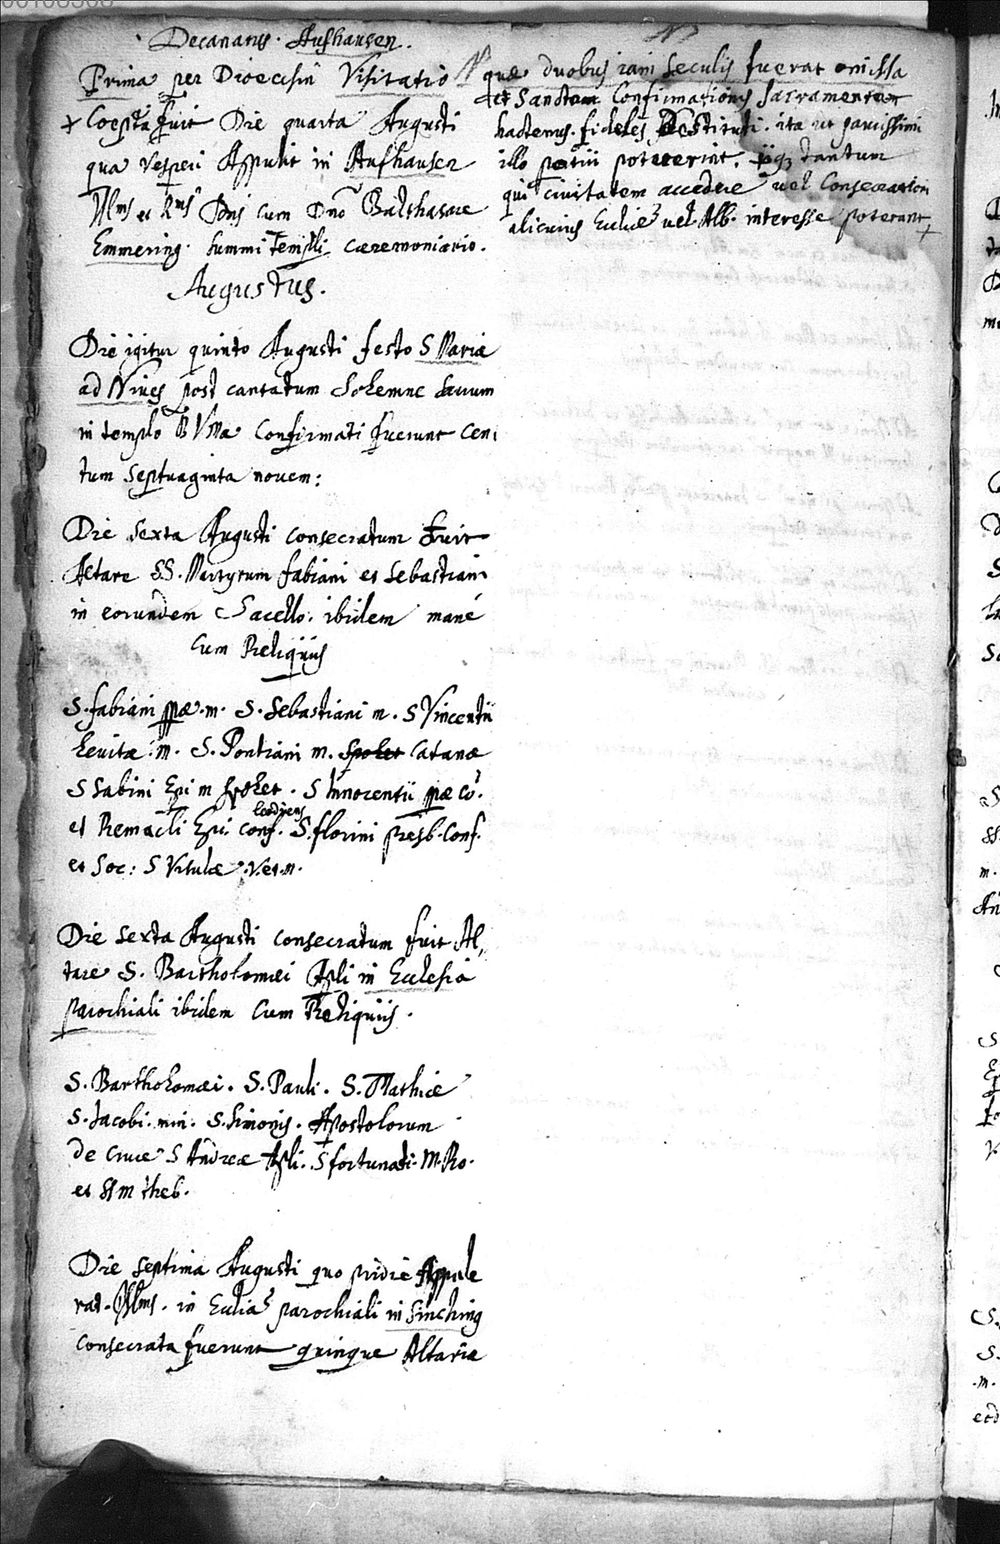 Decanatus. Aufhausen.
Prima per Dioecesin Visitatio N
+ Coepta fuit Die quarta Augusti
qua vesperi Appulit in Aufhausen
Illms et Rms Dns cum Dno Balthasare
Emmering. summi Templi caeremoniario.
Augustus.
Die igitur quinto Augusti festo S Mariae
ad Nives post cantatum Solemne sacrum
in templo B VMae Confirmati fuerunt Cen,
tum septuaginta novem:
Die sexta Augusti consecratum fuit
Altare SS. Martyrum fabiani et Sebastiani
in eorundem Sacello. ibidem mané
Cum Reliquiis
S. fabiani ppae. m. S. Sebastiani m. S Vincentii
Levitae. m. S. Pontiani m. Spolet Catanae
S Sabini Epi m Spolet. S Innocentii ppae Co.
et Remacli Epi. Conf. S. florini presb. Conf.
et Soc: S Vitulae. V. et. m.
Die sexta Augusti consecratum fuit Al,
tare S. Bartholomaei Apli in Ecclesia
parochiali ibidem Cum Reliquiis.
S. Bartholomaei. S. Pauli. S. Mathiae
S. Jacobi. min. S. Simonis. Apostolorum
de Cruce S Andreae Apli. S fortunati. M. Ro.
et SS m theb.
Die septima Augusti quo pridie Appule
rat. Illms. in Eccliae parochiali in Sinching
consecrata fuerunt quinque Altaria
N
quae duobus iam seculis fuerat omissa
et Sanctam Confirmationis sacramentum
hactenus. fideles destituti. ita ut paucissimi
illo potiri poterint. iique tantum
qui civitatem accedere vel Consecrationi
alicuius Eccliae vel Alb. interesse poterant +